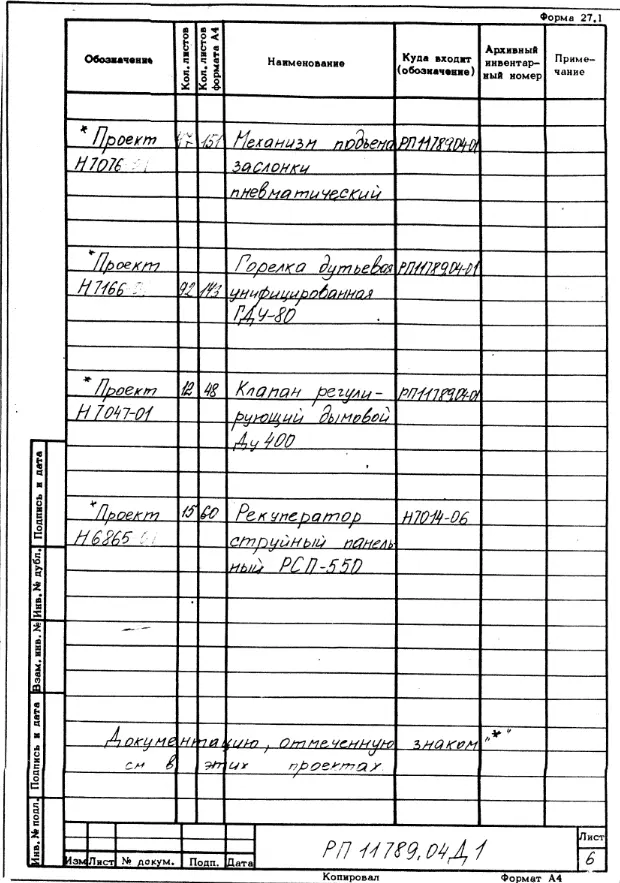 Форма 27.1
Обозначение Кол. листов Кол. листов формата А4 Наименование Куда входит (обозначение) Архивный инвентарный номер Приме-чание
* Проект 151 Механизм подъема РП11789.04-01
Н7076 заслонки
пневматический
* Проект Горелка дутьевая РП11789.04-01
Н7166 92 143 унифицированная
ГДУ-80
* Проект 12 48 Клапан регули- РП11789.04-01
Н7047-01 рующий дымовой
Ду 400
* Проект 15 60 Рекуператор Н7014-06
Н6865 струйный панель-
ный РСП-550
Документацию, отмеченную знаком „*"
см в этих проектах.
Инв. № подл. Подпись и дата Взам. инв. № Инв. № дубл. Подпись и дата
РП 11789.04Д1
Лист
6
Изм Лист № докум. Подп. Дата
Копировал Формат А4